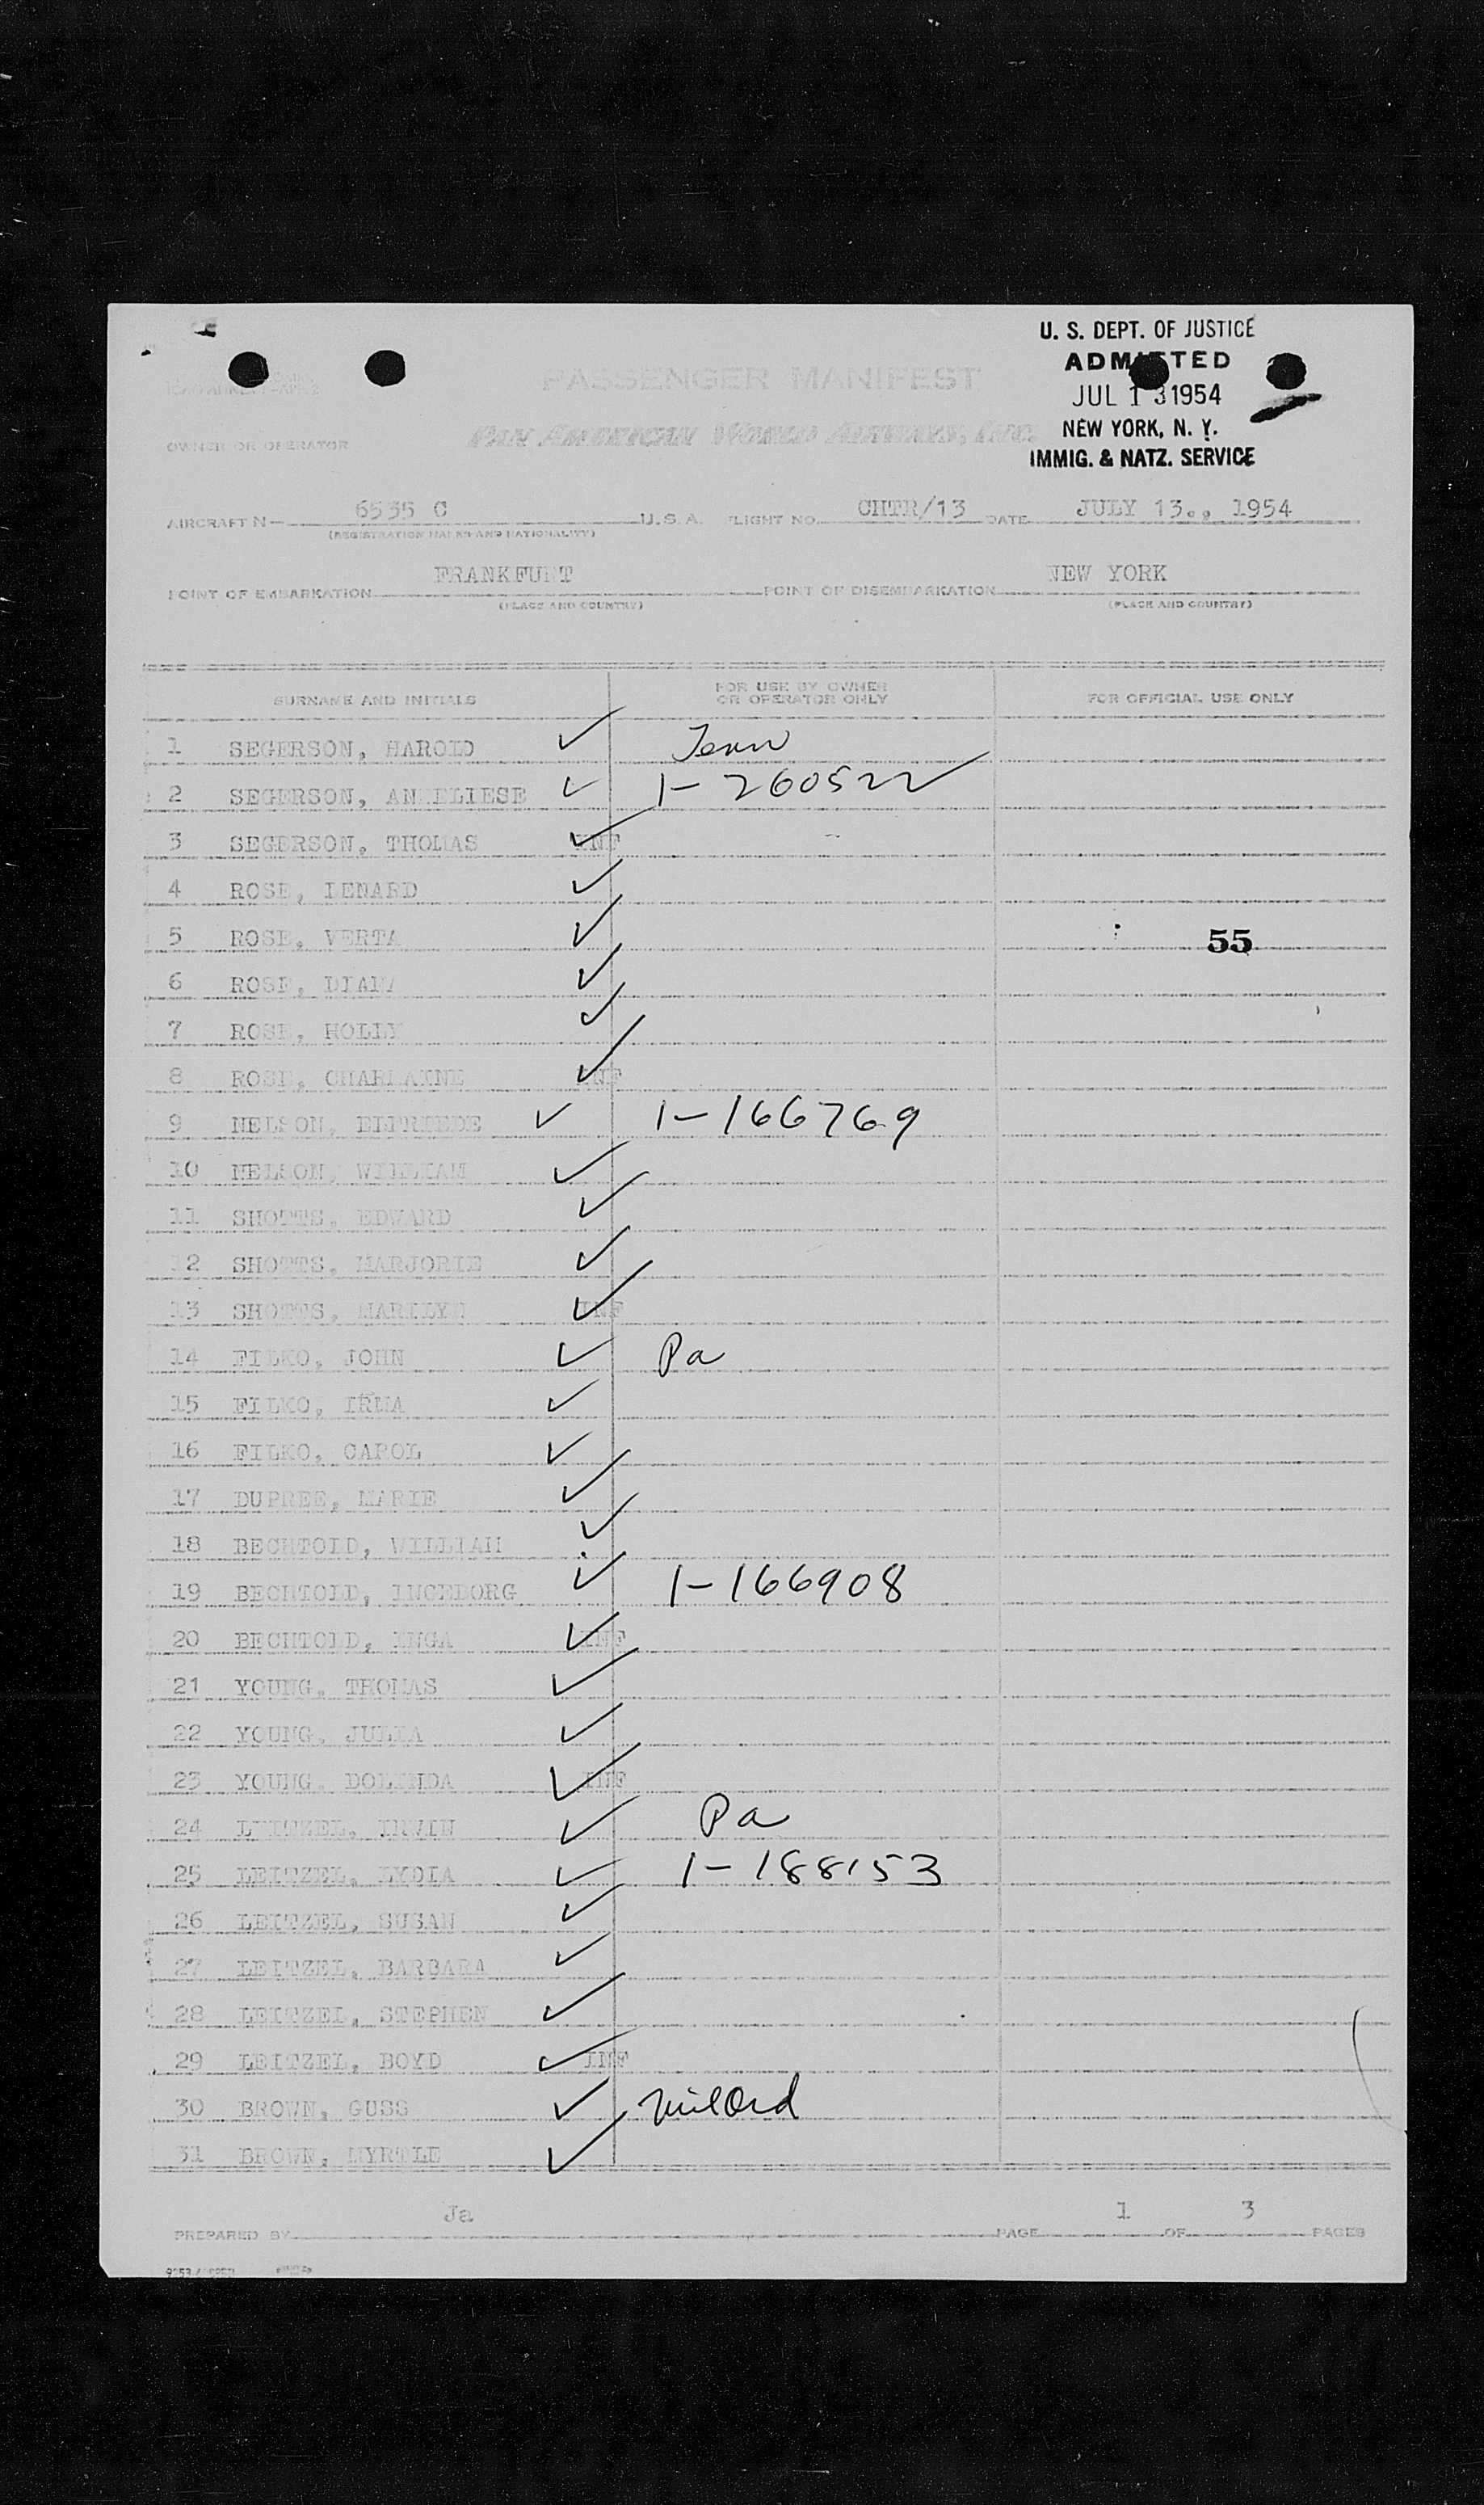 U. S. DEPT. OF JUSTICE
ADMITTED
JUL 13 1954
NEW YORK, N. Y.
IMMIG. & NATZ. SERVICE
PASSENGER MANIFEST
PAN AMERICAN WORLD AIRWAYS, INC.
OWNER OR OPERATOR
AIRCRAFT N— 6535 C U.S.A. FLIGHT NO. CHTR/13 DATE JULY 13., 1954
(REGISTRATION MARKS AND NATIONALITY)
POINT OF EMBARKATION FRANKFURT POINT OF DISEMBARKATION NEW YORK
(PLACE AND COUNTRY) (PLACE AND COUNTRY)
SURNAME AND INITIALS FOR USE BY OWNER OR OPERATOR ONLY FOR OFFICIAL USE ONLY
1 SEGERSON, HAROLD ✓ Tenn
2 SEGERSON, ANNELIESE ✓ 1-260522
3 SEGERSON, THOMAS ✓ INF
4 ROSE, LENARD ✓
5 ROSE, VERTA ✓ 55
6 ROSE, DIANA ✓
7 ROSE, HOLLY ✓
8 ROSE, CHARLAINE ✓ INF
9 NELSON, ELFRIEDE ✓ 1-166769
10 NELSON, WILLIAM ✓
11 SHOTTS, EDWARD ✓
12 SHOTTS, MARJORIE ✓
13 SHOTTS, MARILYN ✓ INF
14 FILKO, JOHN ✓ Pa
15 FILKO, IRMA ✓
16 FILKO, CAROL ✓
17 DUPREE, MARIE ✓
18 BECHTOLD, WILLIAM ✓
19 BECHTOLD, INGEBORG ✓ 1-166908
20 BECHTOLD, INGA ✓ INF
21 YOUNG, THOMAS ✓
22 YOUNG, JULIA ✓
23 YOUNG, DOLINDA ✓ INF
24 LEITZEL, IRVIN ✓ Pa
25 LEITZEL, LYDIA ✓ 1-188153
26 LEITZEL, SUSAN ✓
27 LEITZEL, BARBARA ✓
28 LEITZEL, STEPHEN ✓
29 LEITZEL, BOYD ✓ INF
30 BROWN, GUSS ✓
31 BROWN, MYRTLE ✓
PREPARED BY Ja PAGE 1 OF 3 PAGES